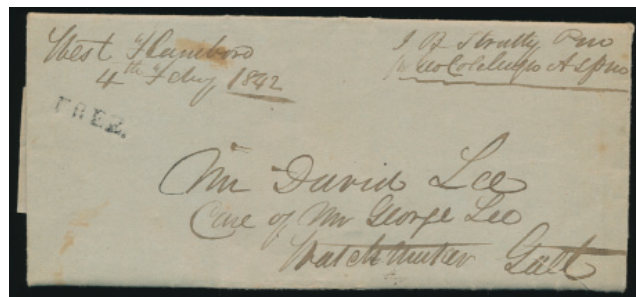 West Flamboro
4th Feby 1842
FREE.
J B Pm
Mr David Lee
Care of Mr George Lee
Watchmaker Galt